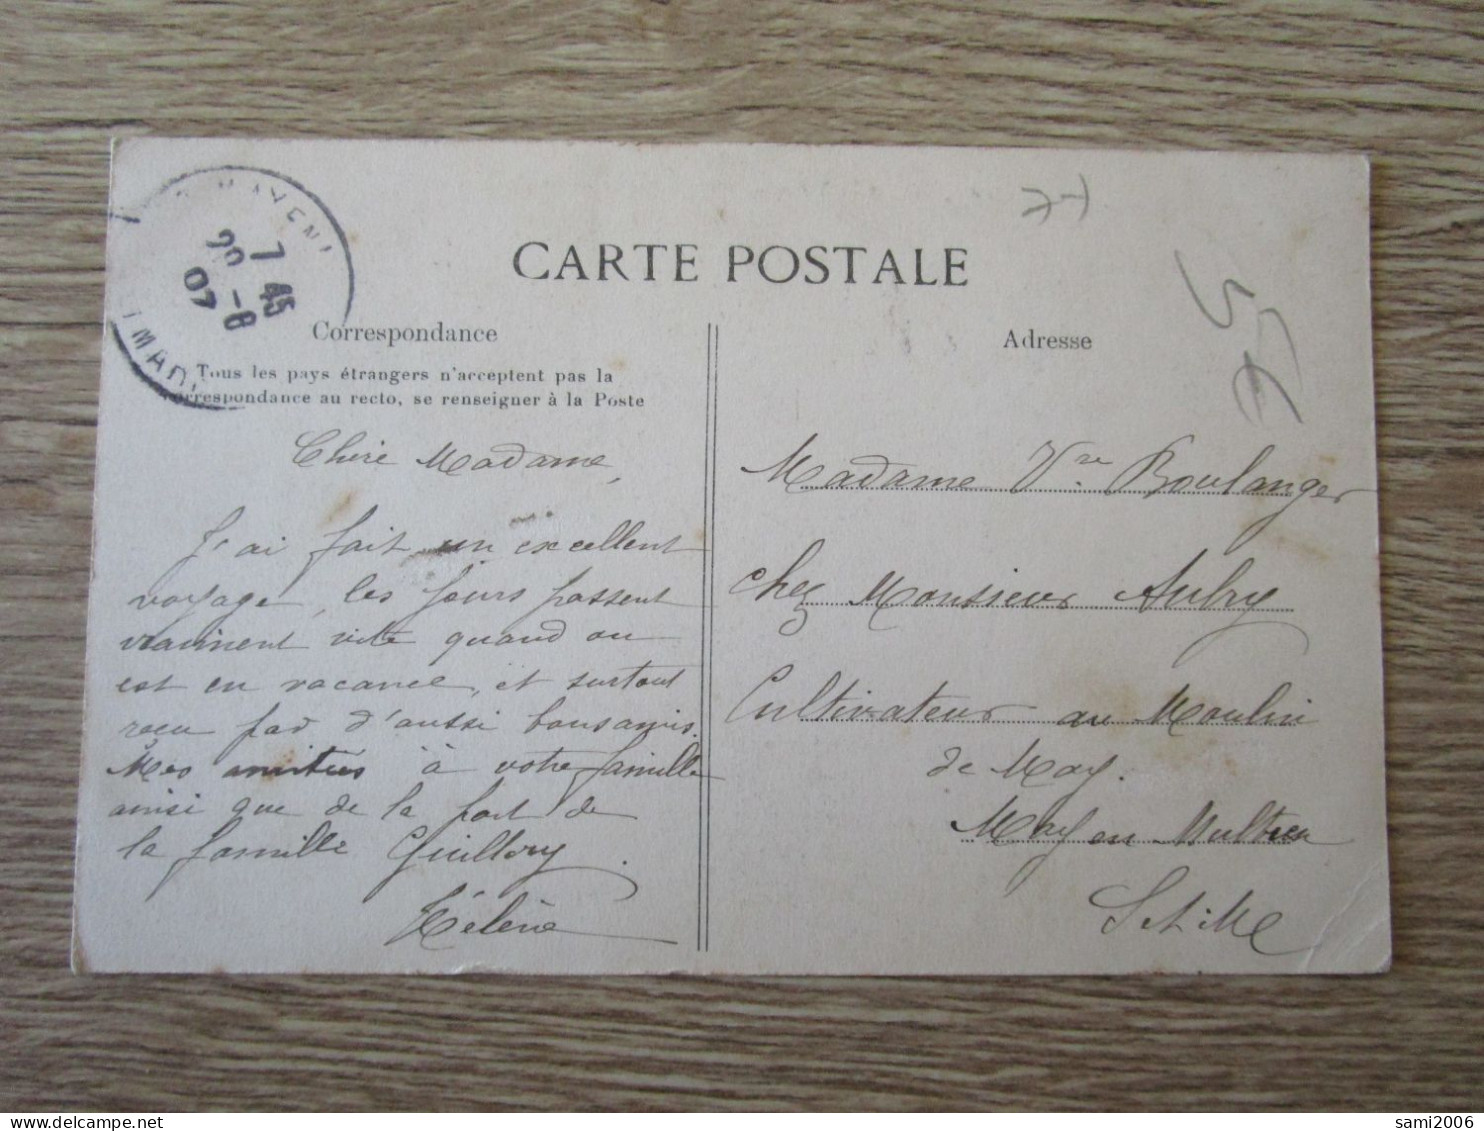 MAYEN
7 45
20 -8
07
CARTE POSTALE
Correspondance
Tous les pays étrangers n'acceptent pas la
correspondance au recto, se renseigner à la Poste
Chère Madame,
J'ai fait un excellent
voyage, les jours passent
vraiment vite quand on
est en vacance, et surtout
reçu par d'aussi bons amis.
Mes amitiés à votre famille
ainsi que de la part de
la famille Guillory.
Hélène
Adresse
Madame Vve Boulanger
chez Monsieur Aubry
Cultivateur au Moulin
de May.
May en Multien
S et M
77
5€
sami2006